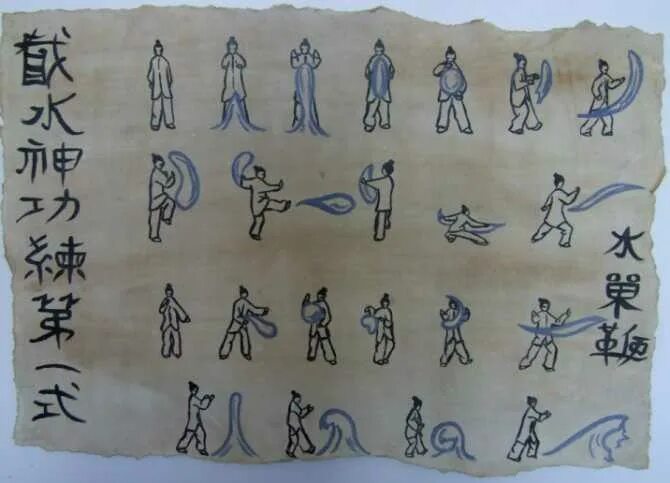 截水神功練第一式
水單鞭